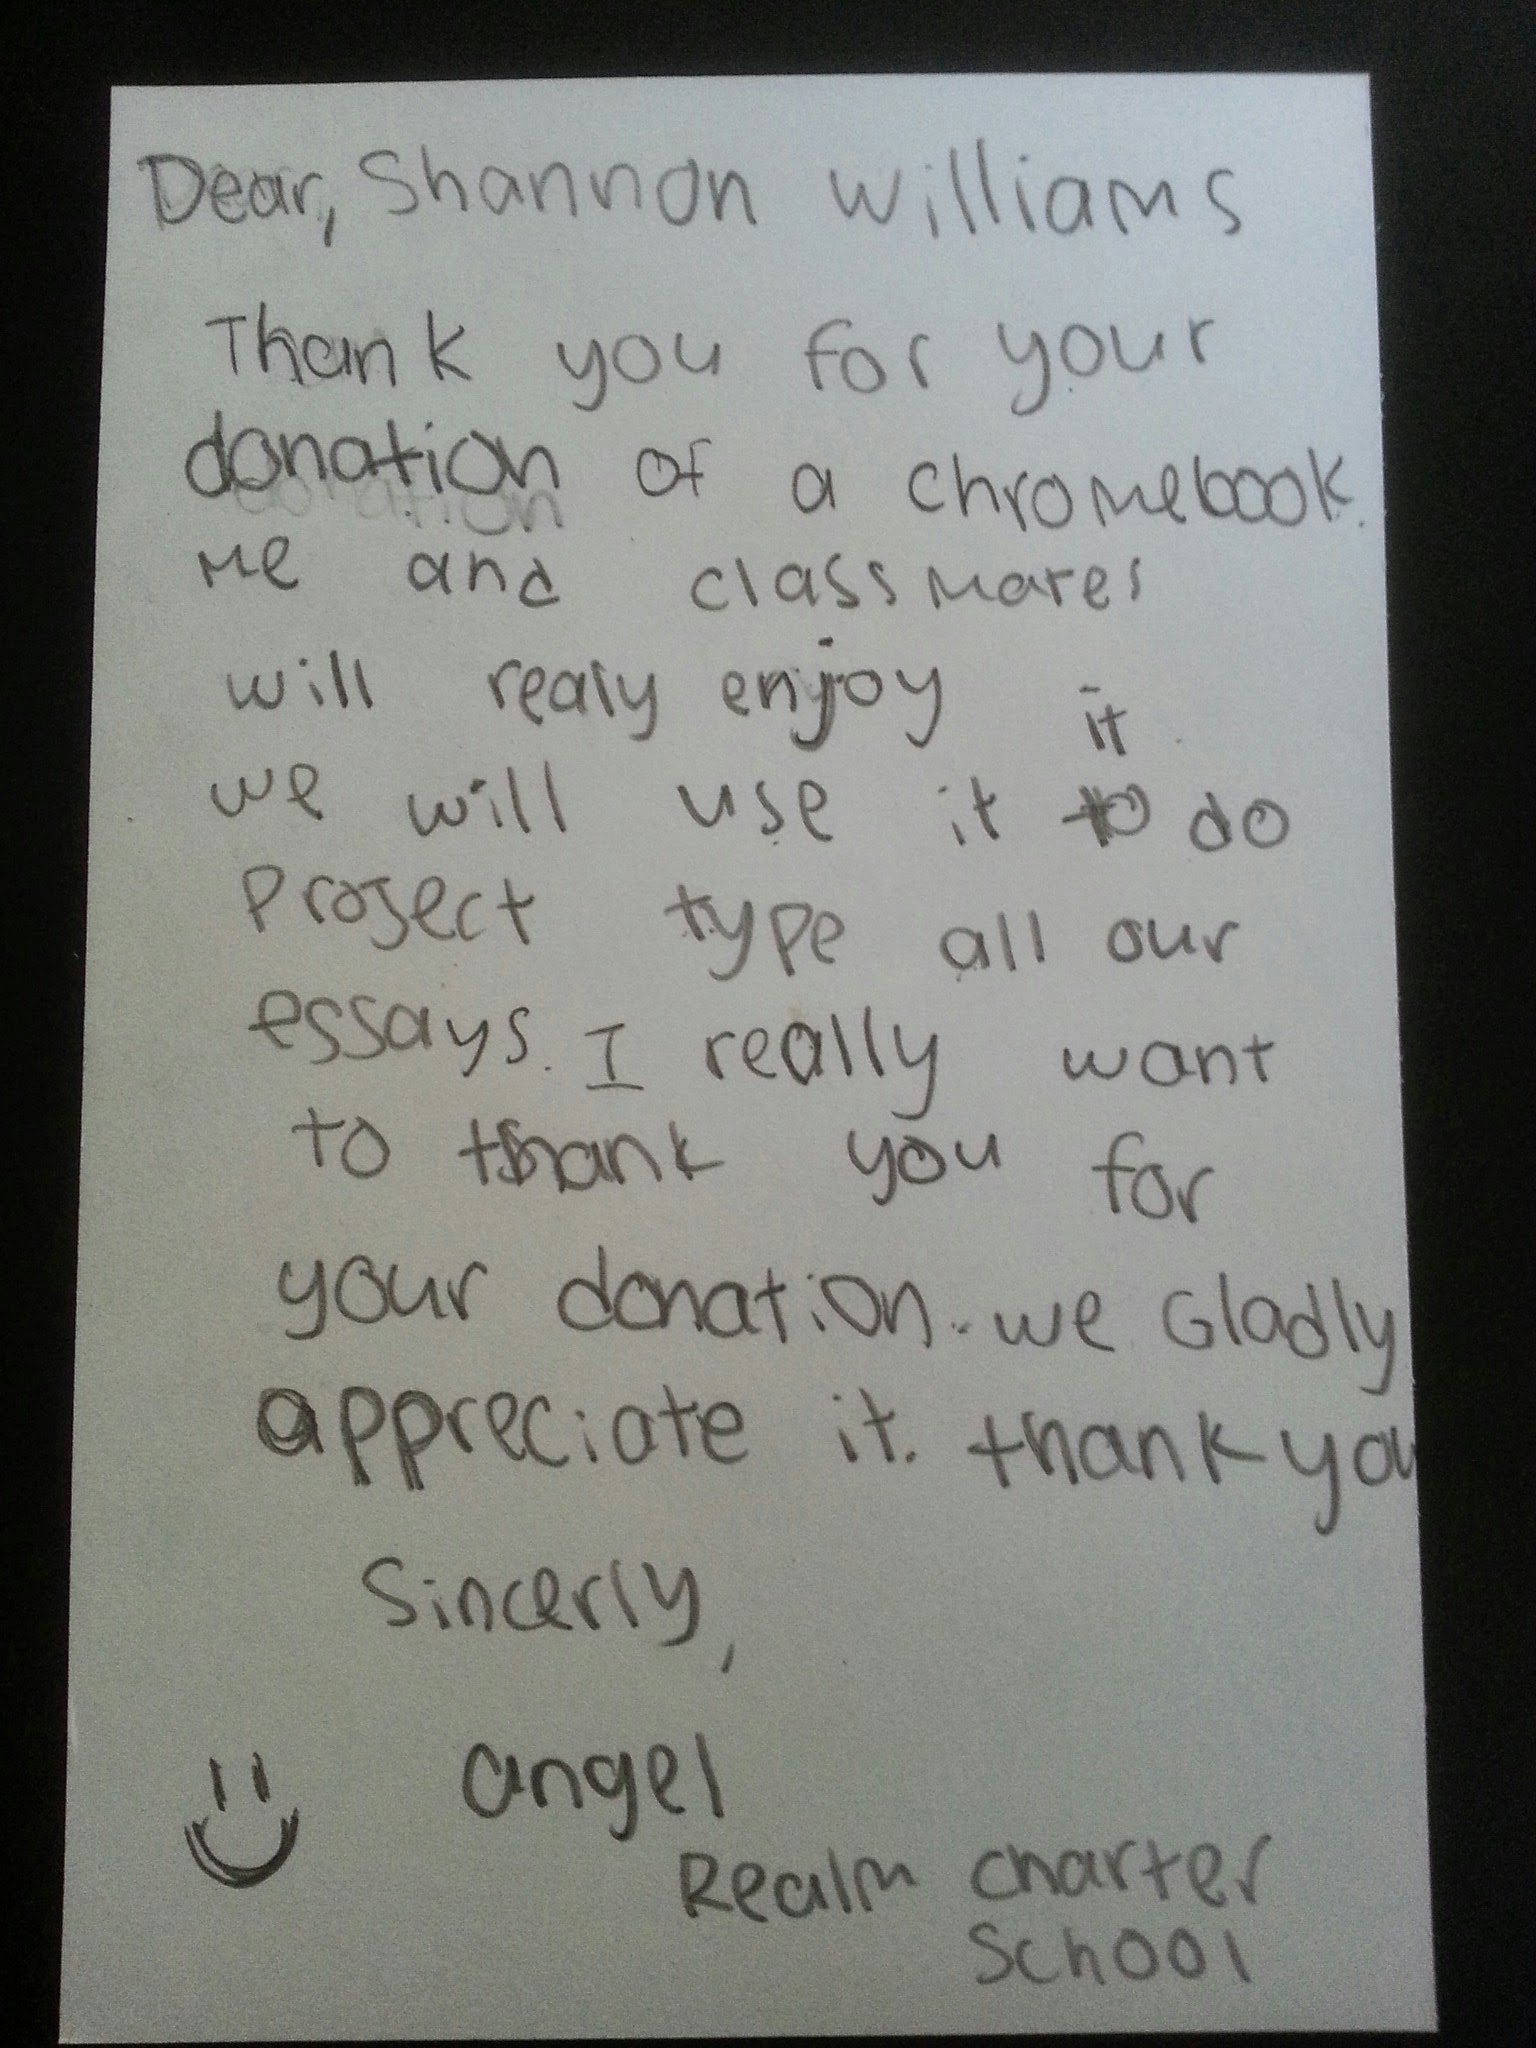 Dear, Shannon Williams
Thank you for your
donation of a chromebook.
Me and classmates
will realy enjoy it.
we will use it to do
Project type all our
essays. I really want
to thank you for
your donation. we Gladly
appreciate it. thank you
Sincerly,
angel
Realm charter
School